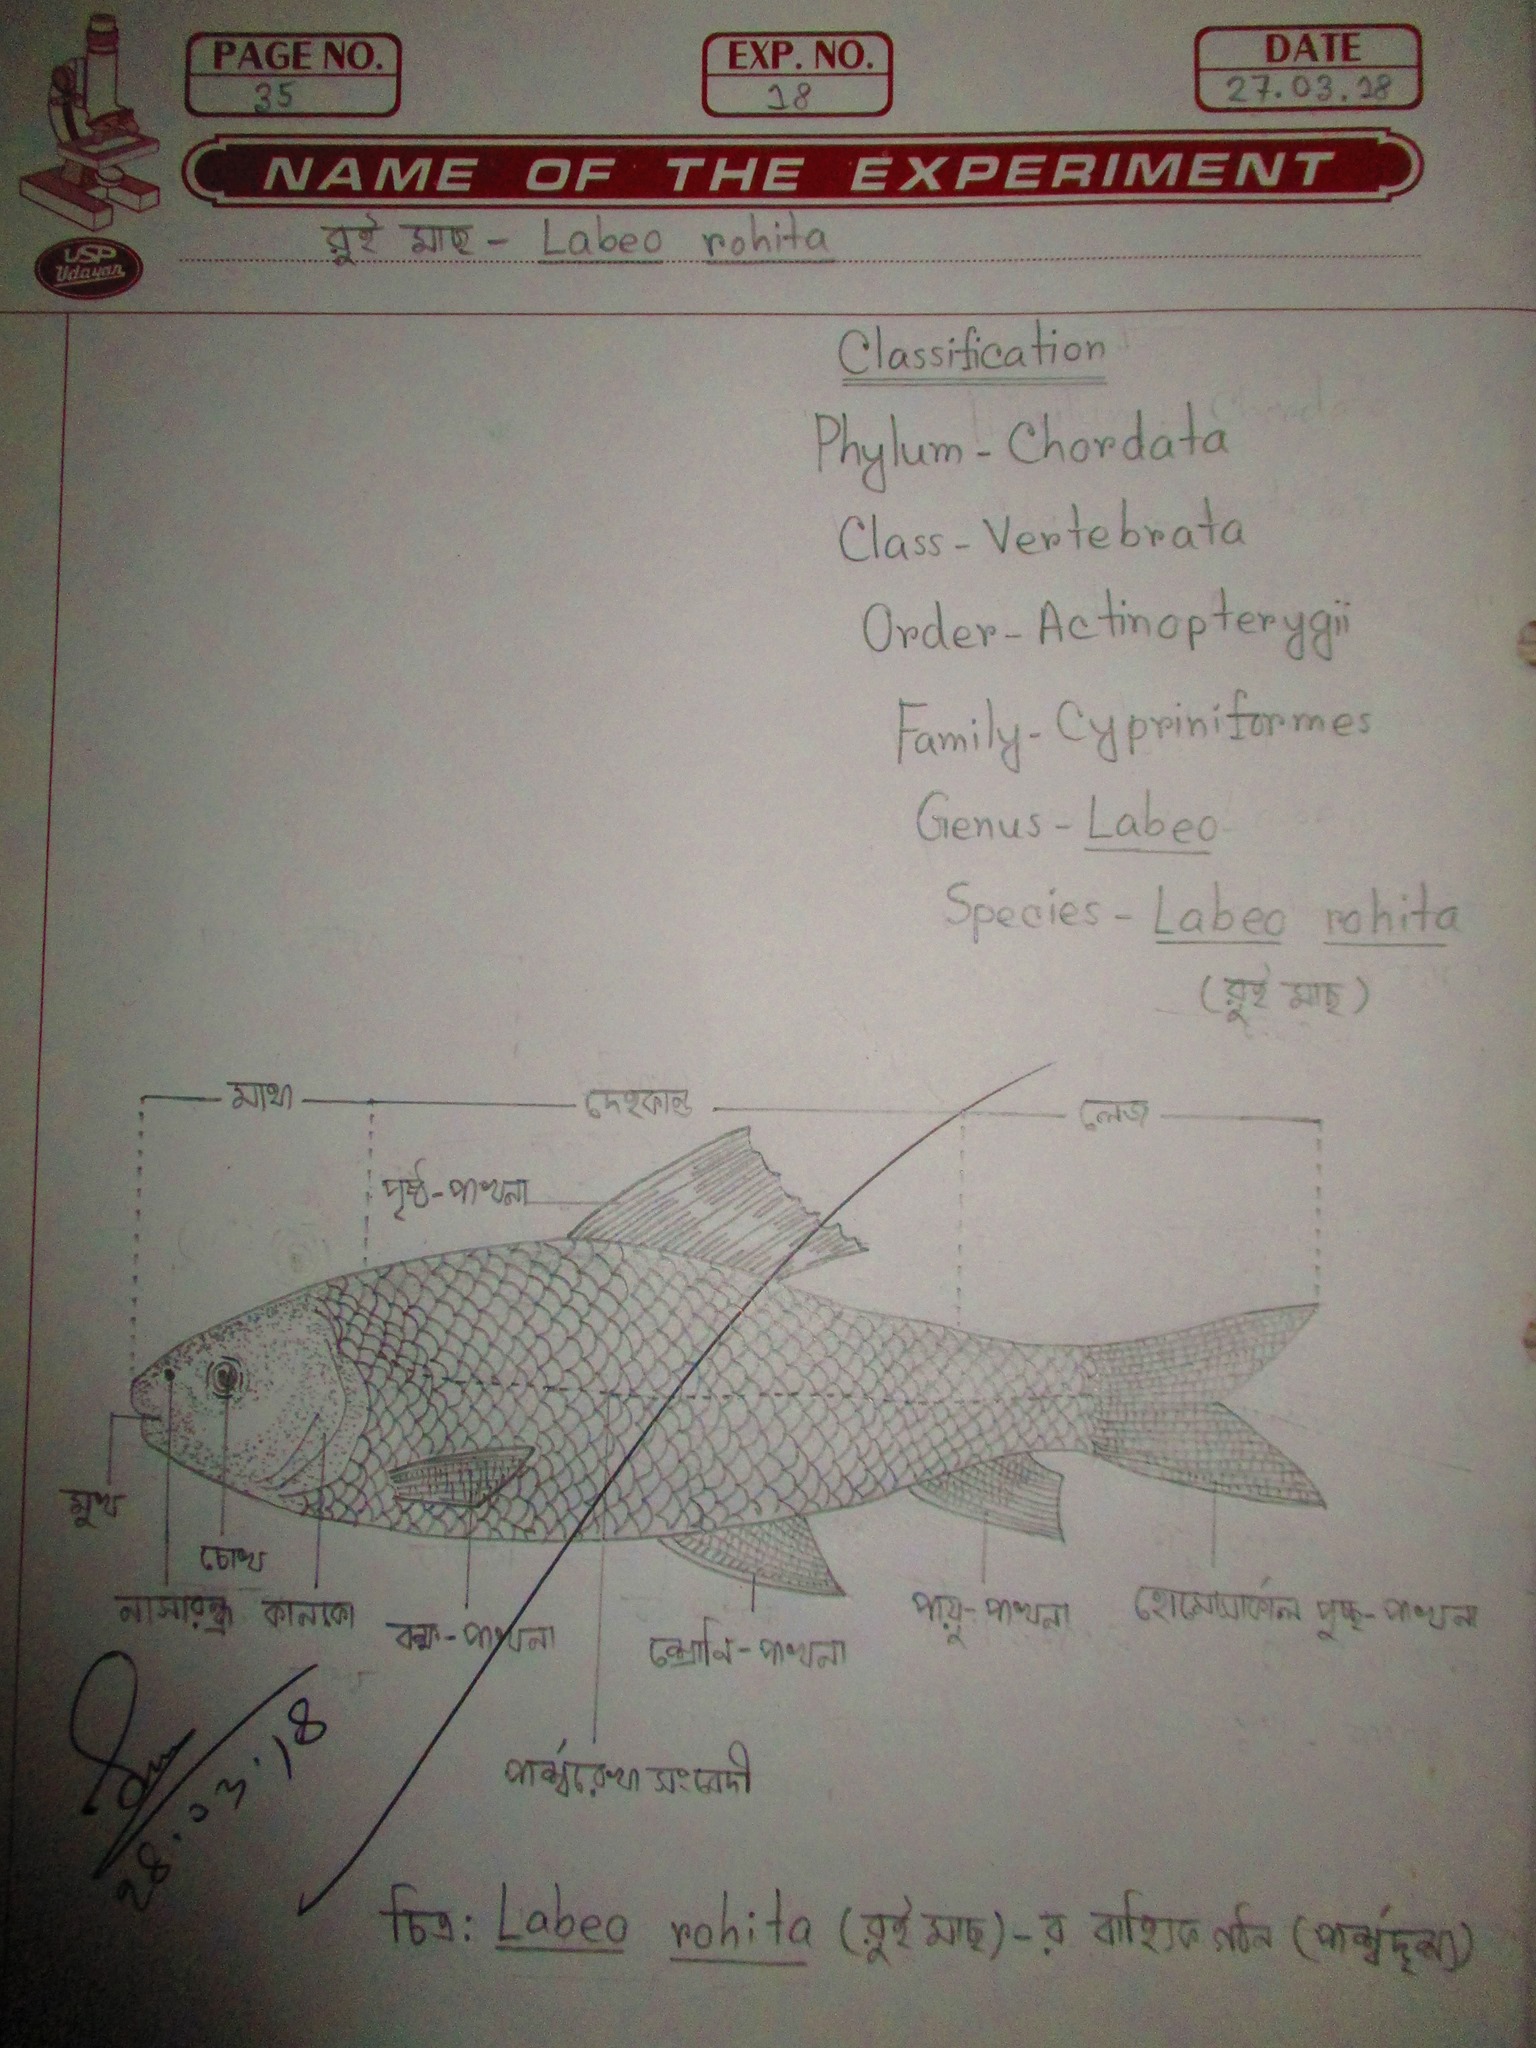 PAGE NO.
35
EXP. NO.
18
DATE
27.03.18
NAME OF THE EXPERIMENT
USP
Udayan
রুই মাছ - Labeo rohita
Classification
Phylum - Chordata
Class - Vertebrata
Order - Actinopterygii
Family - Cypriniformes
Genus - Labeo
Species - Labeo rohita
(রুই মাছ)
মাথা
দেহকান্ড
লেজ
পৃষ্ঠ-পাখনা
মুখ
চোখ
নাসারন্ধ্র
কানকো
বক্ষ-পাখনা
শ্রোণি-পাখনা
পায়ু-পাখনা
হোমোসার্কাল পুচ্ছ-পাখনা
পার্শ্বরেখা সংবেদী
28.03.18
চিত্র: Labeo rohita (রুই মাছ)-র বাহ্যিক গঠন (পার্শ্বদৃশ্য)